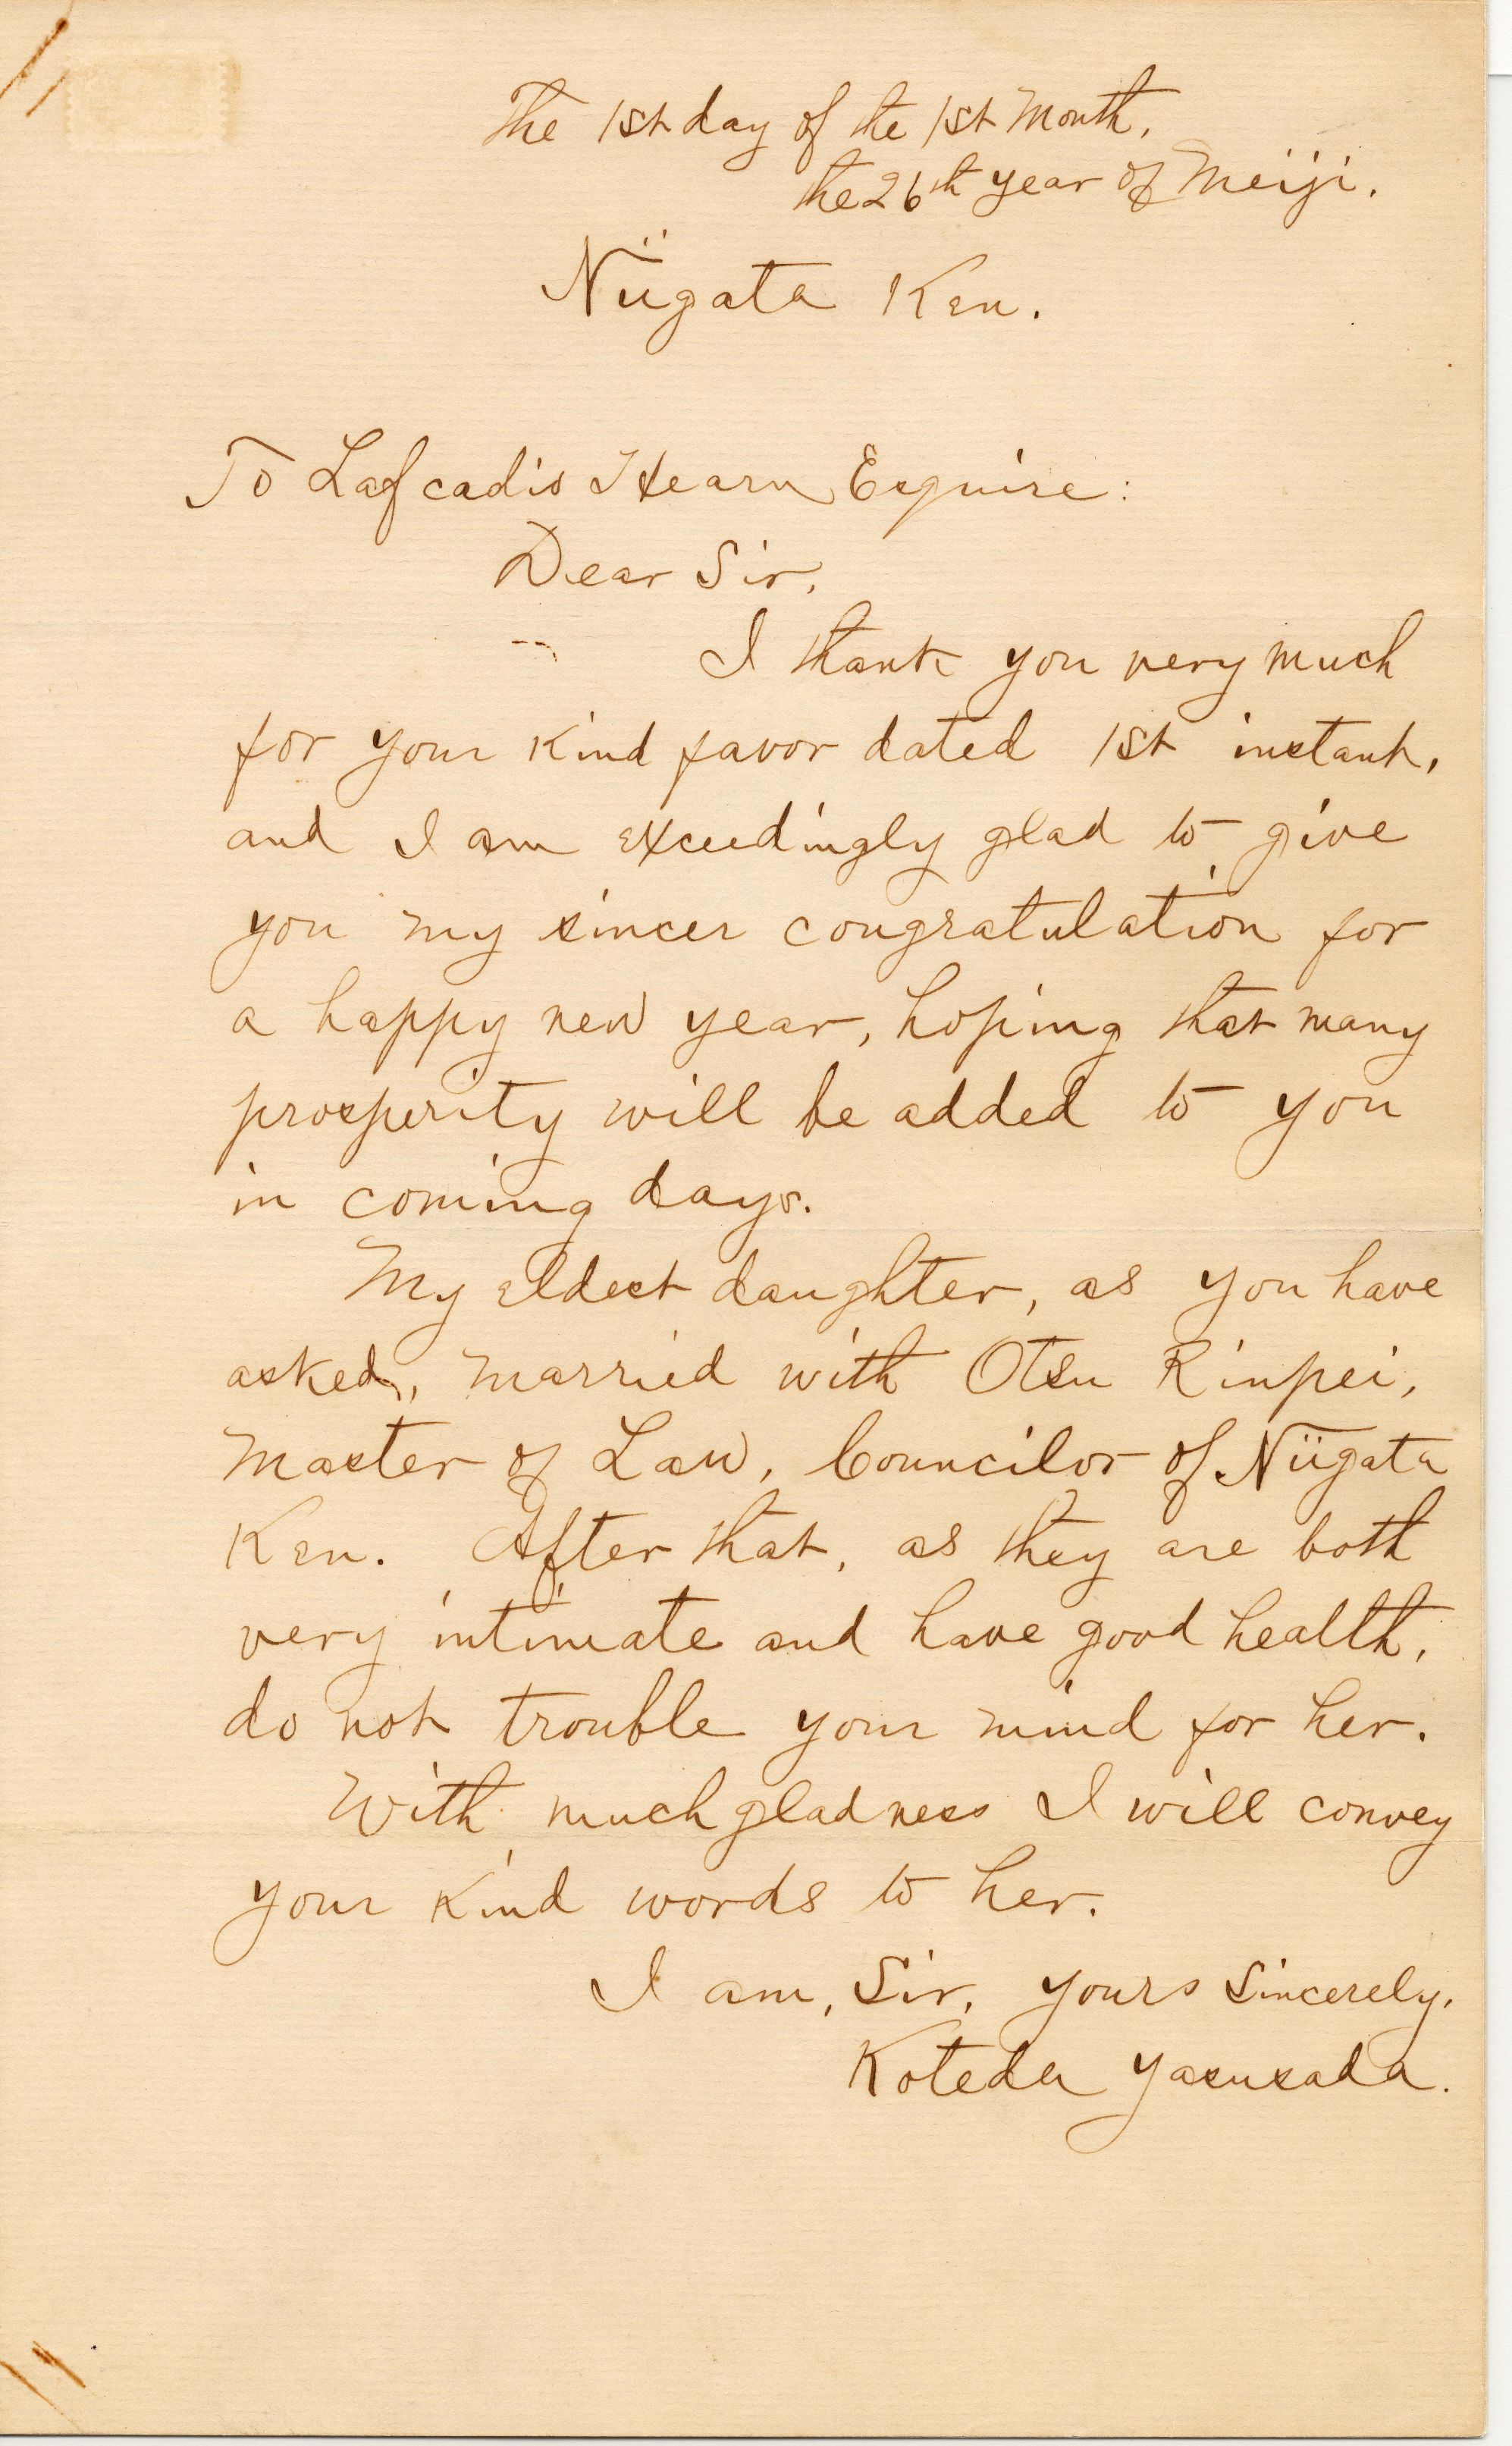 The 1st day of the 1st Month,
the 26th year of Meiji.
Niigata Ken.
To Lafcadio Hearn Esquire:
Dear Sir,
I thank you very much
for your kind favor dated 1st instant,
and I am exceedingly glad to give
you my sincer congratulation for
a happy new year, hoping that many
prosperity will be added to you
in coming days.
My eldest daughter, as you have
asked, married with Otsu Rinpei,
Master of Law, Councilor of Niigata
Ken. After that, as they are both
very intimate and have good health,
do not trouble your mind for her.
With much gladness I will convey
your kind words to her.
I am, Sir, yours sincerely,
Koteda Yasusada.